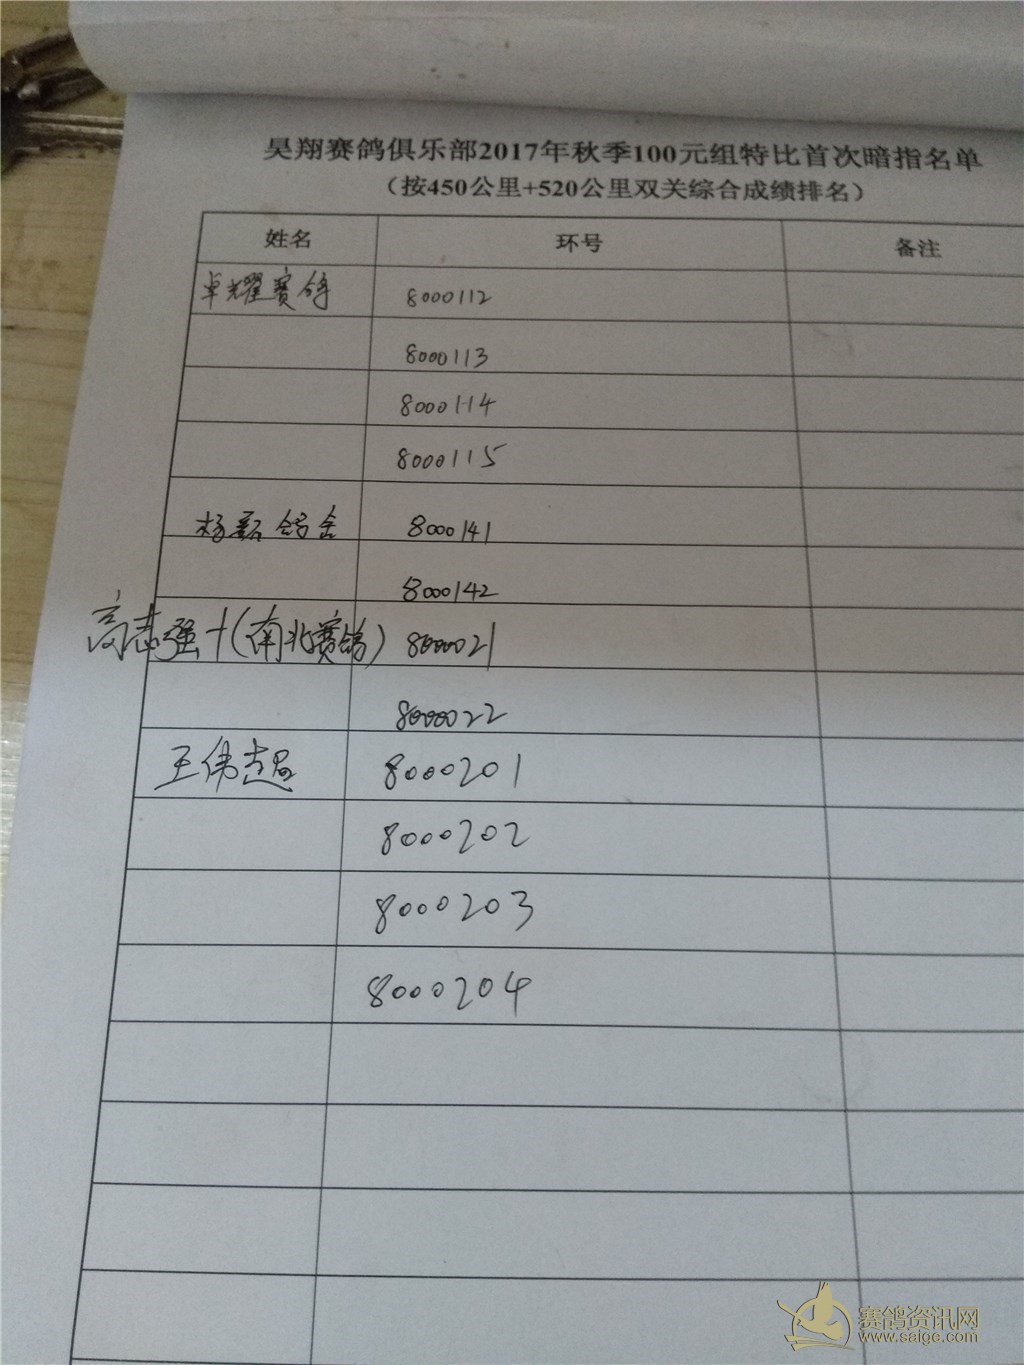 昊翔赛鸽俱乐部2017年秋季100元组特比首次暗指名单
（按450公里+520公里双关综合成绩排名）
姓名 环号 备注
卓耀赛鸽 8000112
8000113
8000114
8000115
杨磊鸽舍 8000141
8000142
高志强+(南北赛鸽) 8000021
8000022
王伟超 8000201
8000202
8000203
8000204
赛鸽资讯网
www.saige.com